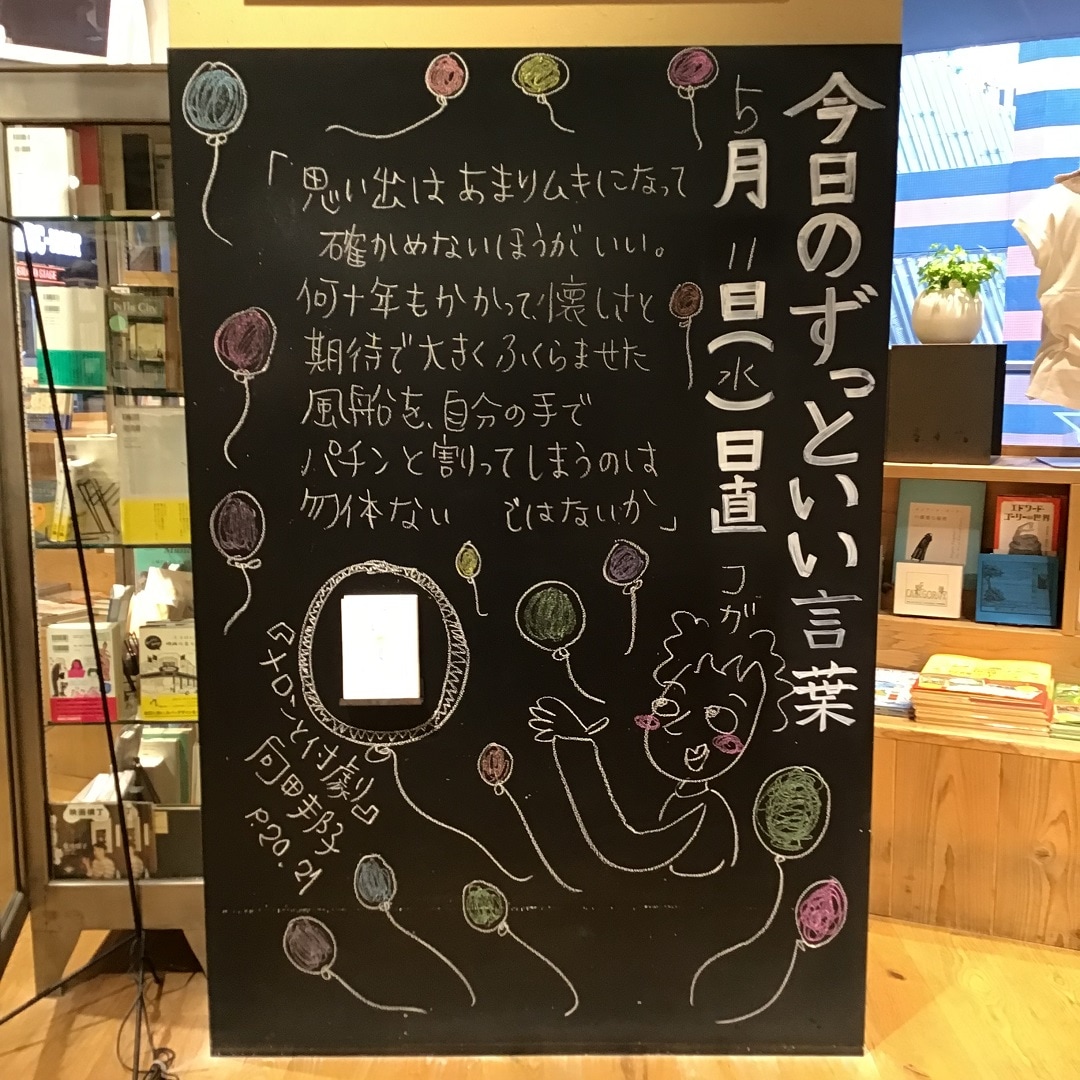 今日のずっといい言葉
5月11日(水)日直 コガ
「思い出はあまりムキになって
確かめないほうがいい。
何十年もかかって、懐しさと
期待で大きくふくらませた
風船を、自分の手で
パチンと割ってしまうのは
勿体ない ではないか」
『メロンと付劇』
向田邦子
P.20.21
エドワード
ゴーリーの世界
映画横丁